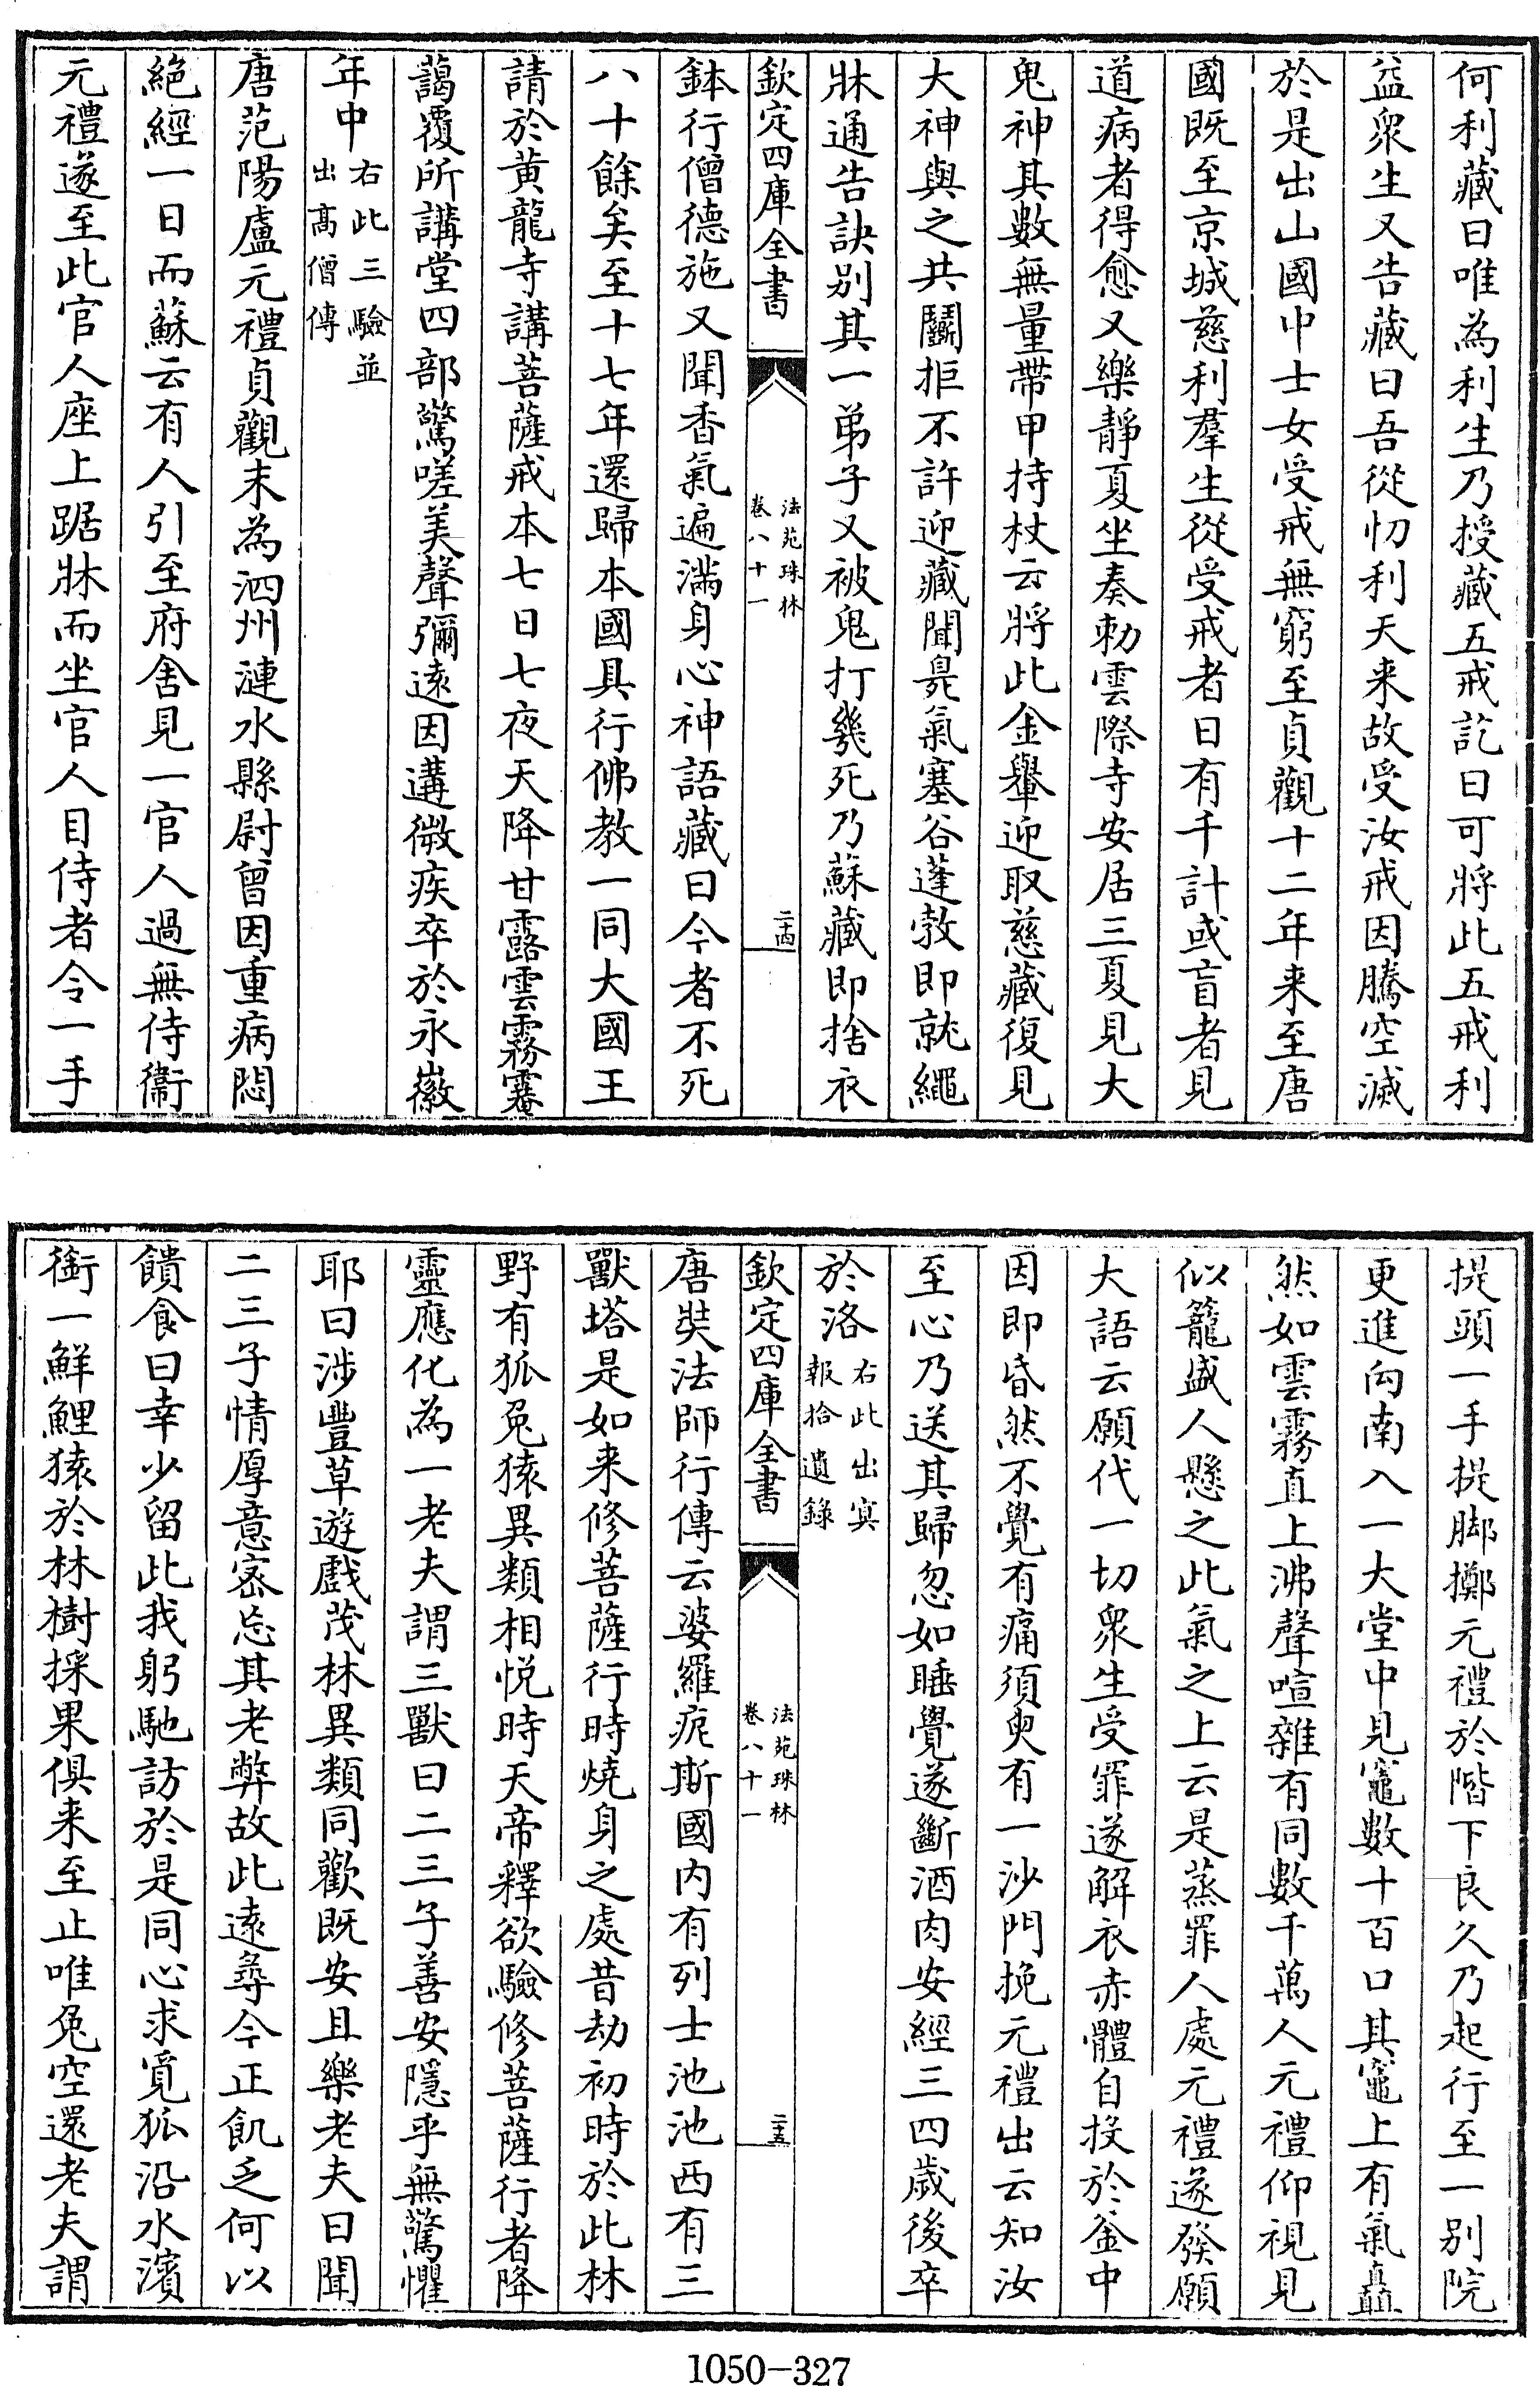 何利藏曰唯為利生乃授藏五戒訖曰可將此五戒利
益衆生又告藏曰吾從忉利天来故受汝戒因騰空滅
於是出山國中士女受戒無窮至貞觀十二年来至唐
國既至京城慈利羣生從受戒者日有千計或盲者見
道病者得愈又樂靜夏坐奏勅雲際寺安居三夏見大
鬼神其數無量帶甲持杖云將此金轝迎取慈藏復見
大神與之共鬭拒不許迎藏聞臰氣塞谷蓬勃即就繩
牀通告訣别其一弟子又被鬼打幾死乃蘇藏即捨衣
欽定四庫全書
法苑珠林
卷八十一
二十四
鉢行僧德施又聞香氣遍滿身心神語藏曰今者不死
八十餘矣至十七年還歸本國具行佛教一同大國王
請於黄龍寺講菩薩戒本七日七夜天降甘露雲霧靄
藹覆所講堂四部驚嗟美聲彌遠因遘微疾卒於永徽
年中右此三驗並
出高僧傳
唐范陽盧元禮貞觀末為泗州漣水縣尉曾因重病悶
絶經一日而蘇云有人引至府舍見一官人過無侍衞
元禮遂至此官人座上踞牀而坐官人目侍者令一手
提頭一手提脚擲元禮於階下良久乃起行至一别院
更進向南入一大堂中見竈數十百口其竈上有氣矗
然如雲霧直上沸聲喧雜有同數千萬人元禮仰視見
似籠盛人懸之此氣之上云是蒸罪人處元禮遂發願
大語云願代一切衆生受罪遂解衣赤體自投於釜中
因即昏然不覺有痛須臾有一沙門挽元禮出云知汝
至心乃送其歸忽如睡覺遂斷酒肉安經三四歲後卒
於洛右此出㝠
報拾遺錄
欽定四庫全書
法苑珠林
卷八十一
二十五
唐奘法師行傳云婆羅痆斯國内有列士池池西有三
獸塔是如来修菩薩行時燒身之處昔劫初時於此林
野有狐兔猿異類相悦時天帝釋欲驗修菩薩行者降
靈應化為一老夫謂三獸曰二三子善安隱乎無驚懼
耶曰涉豐草遊戲茂林異類同歡既安且樂老夫曰聞
二三子情厚意密忘其老弊故此遠尋今正飢乏何以
饋食曰幸少留此我躬馳訪於是同心求覓狐沿水濱
銜一鮮鯉猿於林樹採果俱来至止唯兔空還老夫謂
1050-327